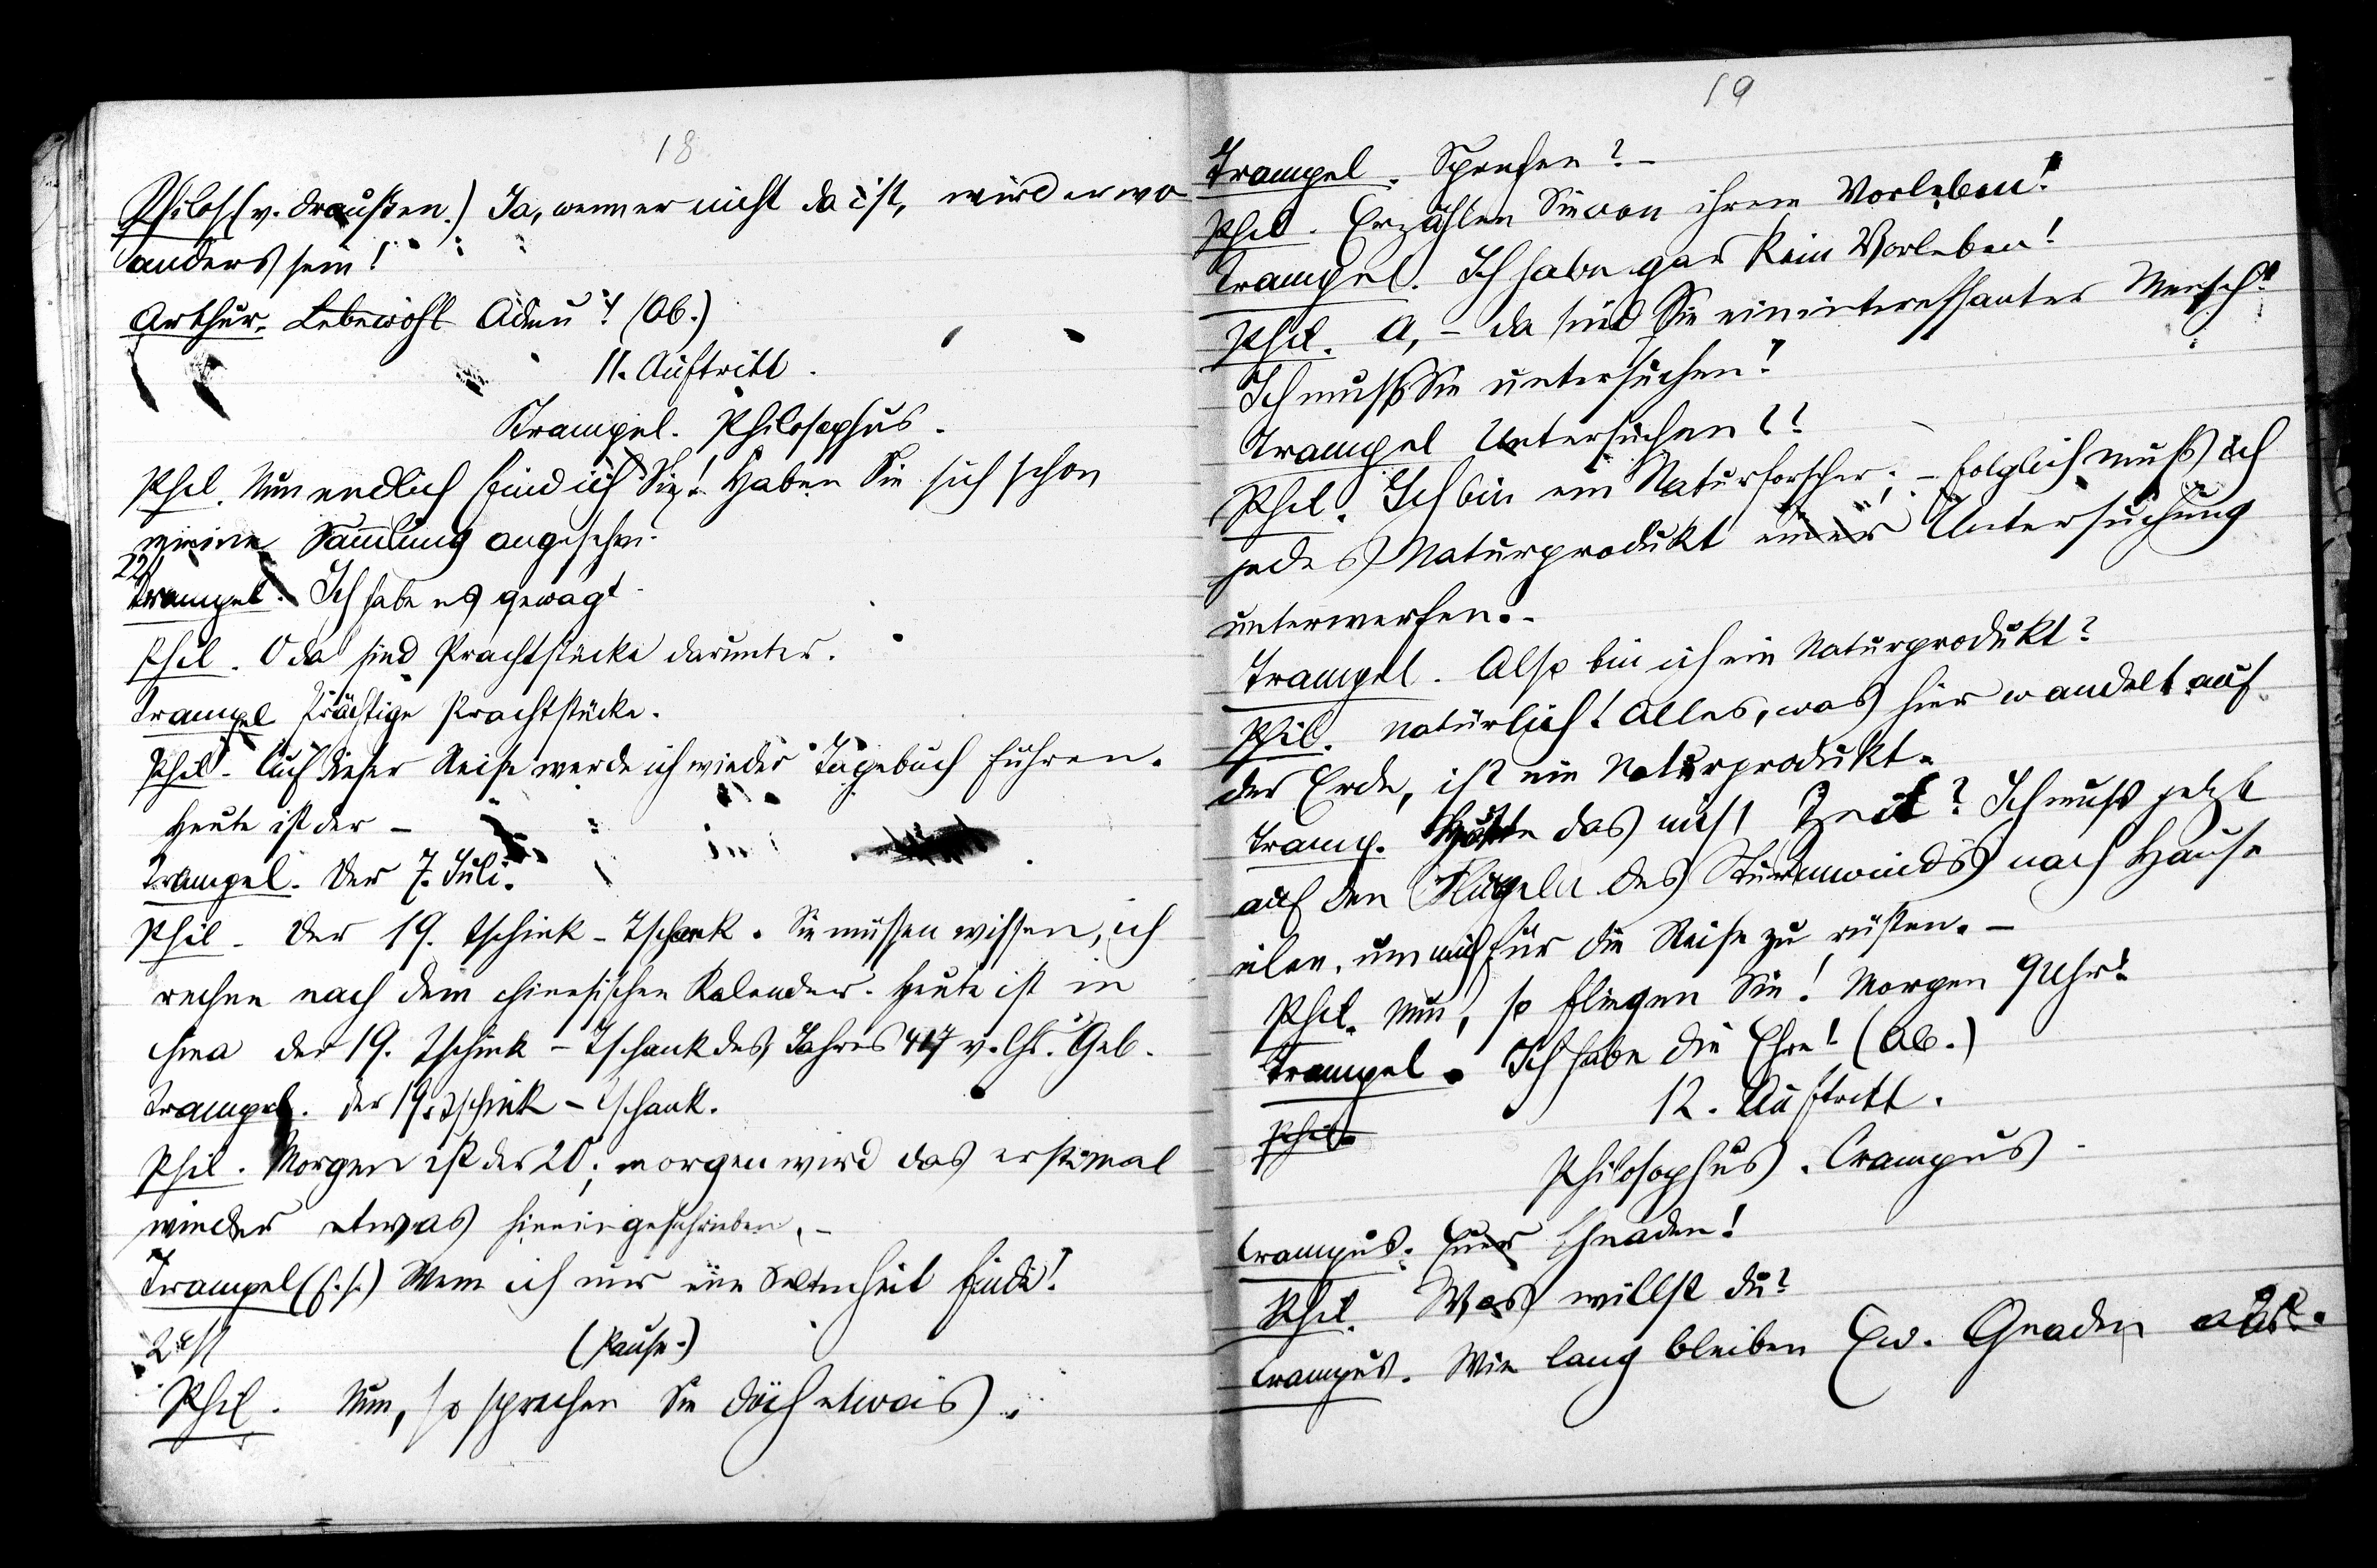 18
Philos. (v. draußen.) Ja, wenn er nicht da ist, wird er wo
anders sein!
Arthur. Lebewohl Adieu! (Ab.)
11. Auftritt.
Trampel. Philosophus.
Phil. Nun endlich find ich Sie! Haben Sie sich schon
meine Sammlung angesehen.
22
Trampel. Ich habe es gewagt.
Phil. O da sind Prachtstücke darunter.
Trampel Prächtige Prachtstücke.
Phil. Auf dieser Reise werde ich wieder Tagebuch führen.
Heute ist der –
Trampel. Der 7. Juli.
Phil. Der 19. Tschink-Tschank. Sie müssen wissen, ich
rechne nach dem chinesischen Kalender. Heute ist in
China der 19. Tschink-Tschank des Jahres 417 v. Chr. Geb.
Trampel. Der 19. Tschink-Tschank.
Phil. Morgen ist der 20; morgen wird das erstemal
wieder etwas hineingeschrieben. –
Trampel (f. s.) Wenn ich nur eine Seltenheit finde!
(Pause.)
Phil. Nun, so sprechen Sie doch etwas.
19
Trampel. Sprechen? –
Phil. Erzählen Sie von ihrem Vorleben!
Trampel. Ich habe gar kein Vorleben!
Phil. A, – da sind Sie ein interessanter Mensch!
Ich muß Sie untersuchen!
Trampel Untersuchen??
Phil. Ich bin ein Naturforscher; – folglich muß ich
jedes Naturprodukt einer Untersuchung
unterwerfen. –
Trampel. Also bin ich ein Naturprodukt?
Phil. Natürlich! Alles, was hier wandelt auf
der Erde, ist ein Naturprodukt.
Tramp. Hätte das nicht Zeit? Ich muß jetzt
auf den Flügeln des Sturmwinds nach Hause
eilen, um mich für die Reise zu rüsten. –
Phil. Nun, so fliegen Sie! Morgen 9 Uhr!
Trampel. Ich habe die Ehre! (Ab.)
12. Auftritt.
Phil.
Philosophus. Crampus.
Crampus. Euer Gnaden!
Phil. Was willst du?
Crampus. Wie lang bleiben Ew. Gnaden aus.